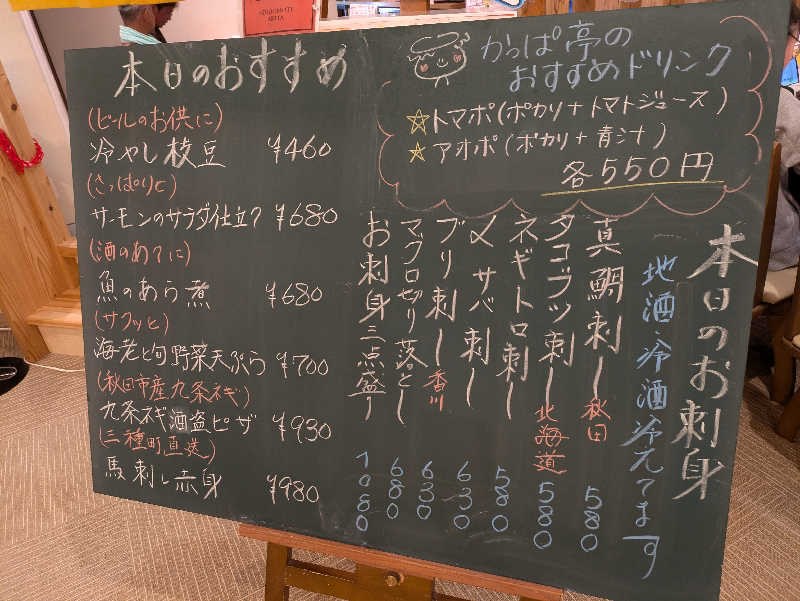 本日のおすすめ
(ビールのお供に)
冷やし枝豆 ¥460
(さっぱりと)
サーモンのサラダ仕立て ¥680
(酒のあてに)
魚のあら煮 ¥680
(サクッと)
海老と旬野菜天ぷら ¥700
(秋田市産九条ネギ)
九条ネギ酒盗ピザ ¥930
(三種町直送)
馬刺し赤身 ¥980
かっぱ亭の
おすすめドリンク
☆トマポ(ポカリ+トマトジュース)
☆アオポ(ポカリ+青汁)
各550円
本日のお刺身
地酒・冷酒冷えてます
真鯛刺し 秋田 580
タコブツ刺し 北海道 580
ネギトロ刺し 580
〆サバ刺し 630
ブリ刺し 香川 630
マグロぜり落とし 680
お刺身三点盛り 1080